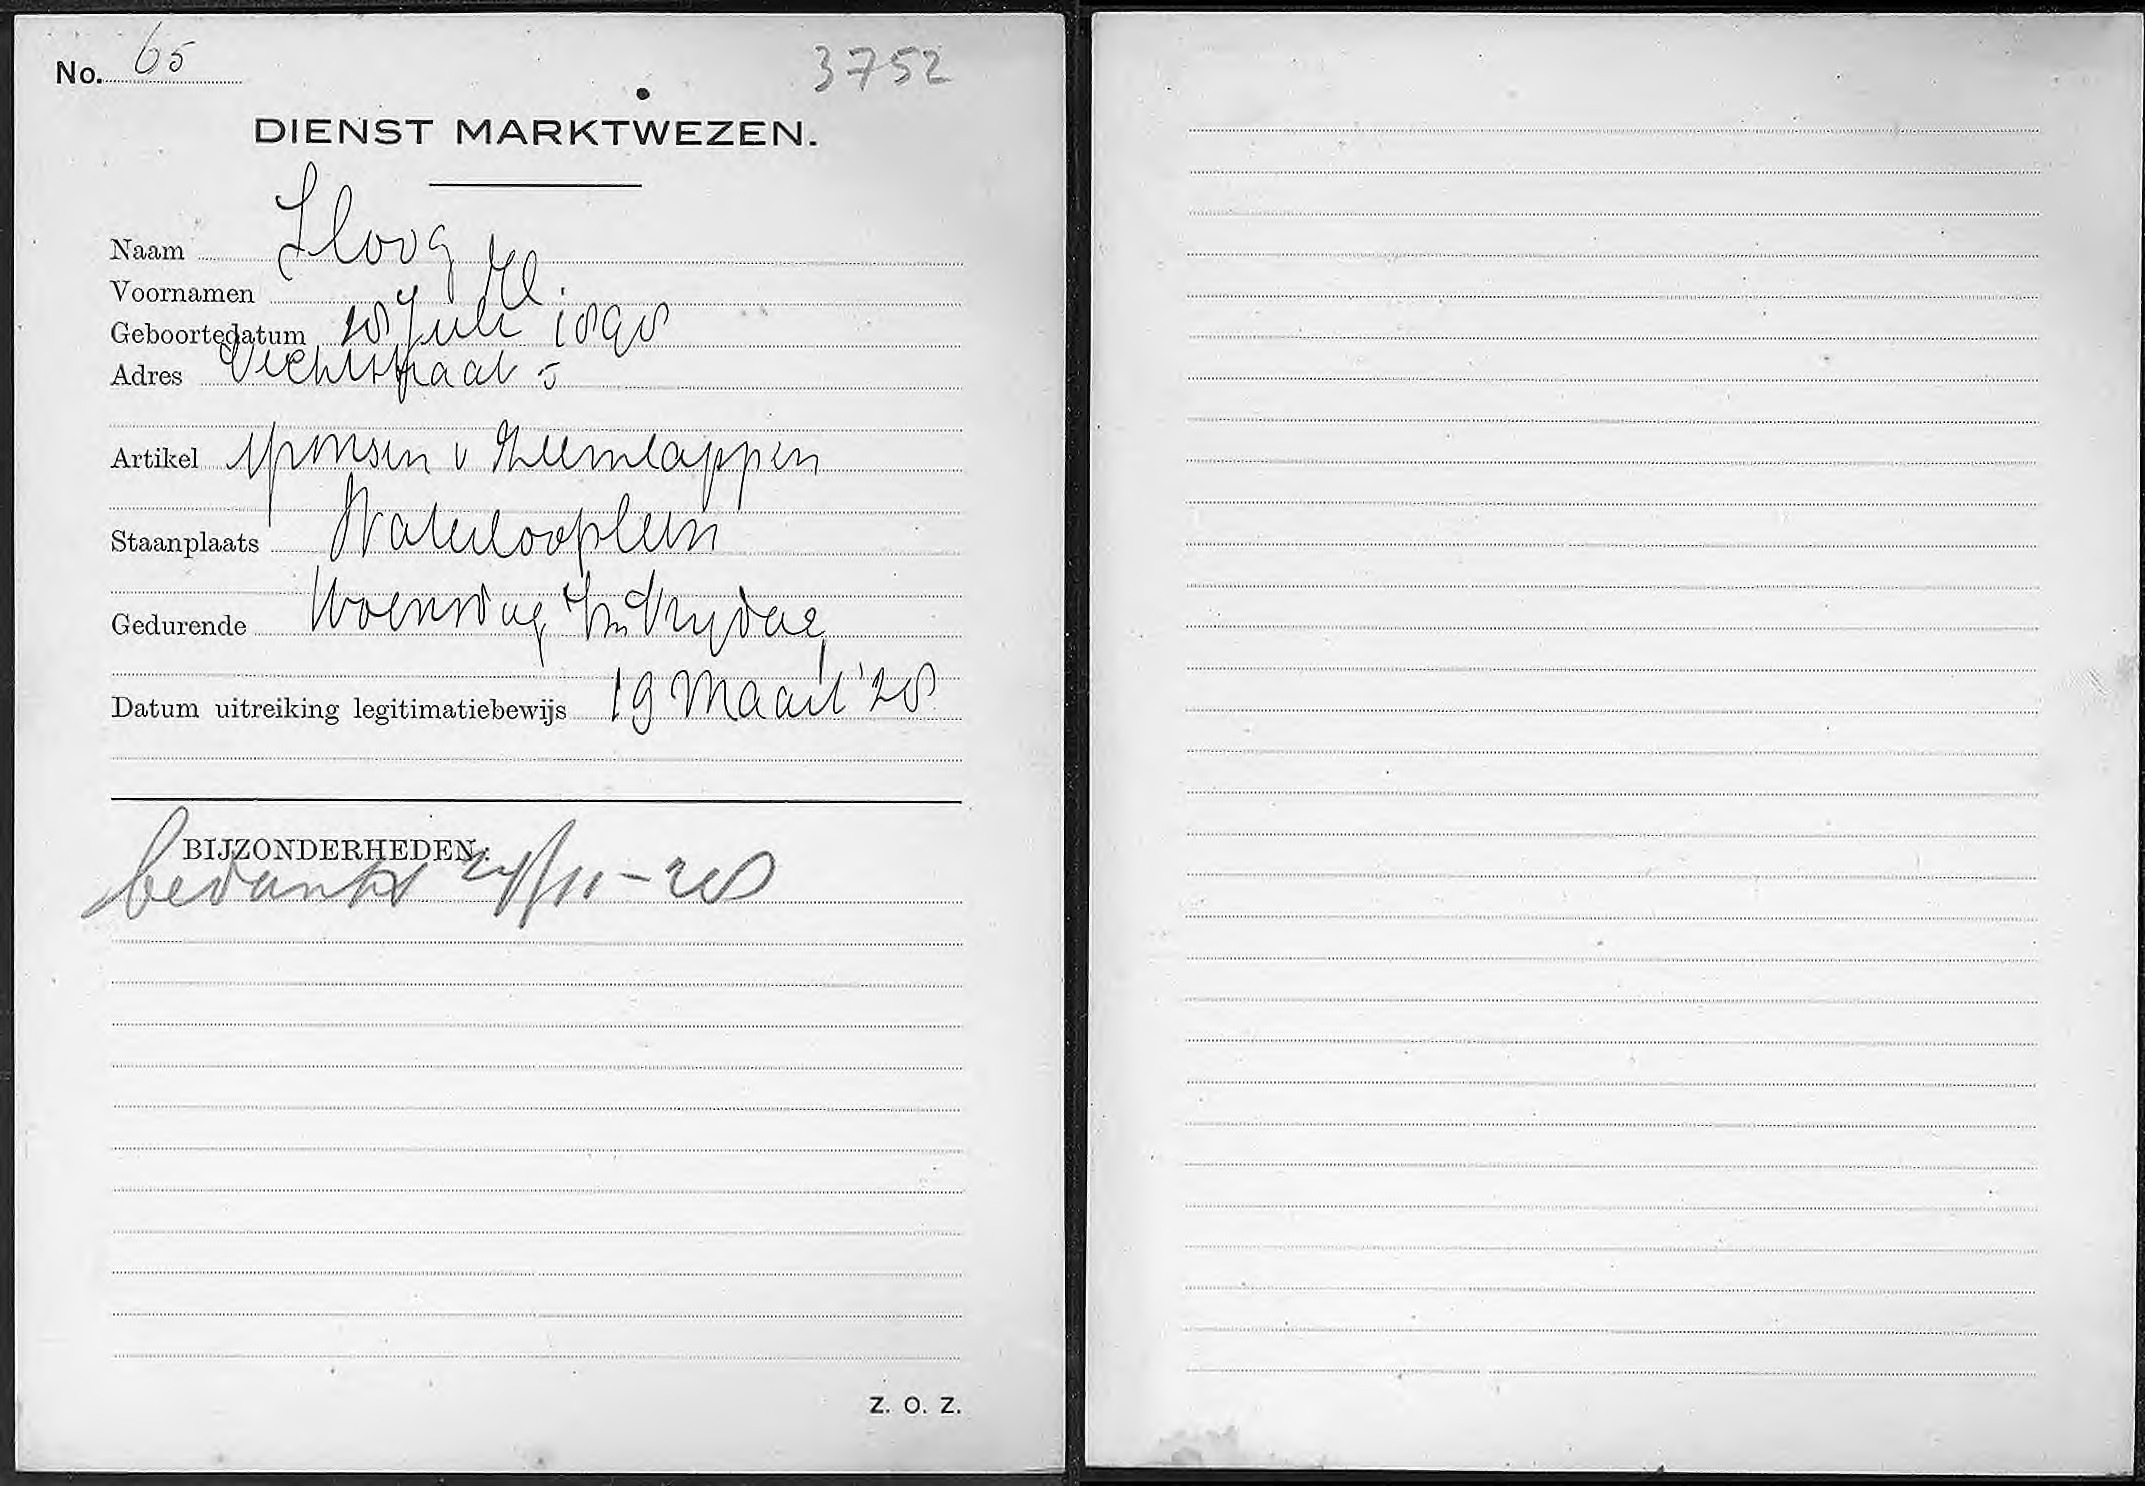 No. 65
3752
DIENST MARKTWEZEN.
Naam Sloog
Voornamen H.
Geboortedatum 28 Juli 1898
Adres Vechtstraat 5
Artikel sponsen v Zeemlappen
Staanplaats Waterlooplein
Gedurende Woensdag t/m Vrijdag
Datum uitreiking legitimatiebewijs 19 Maart '28
BIJZONDERHEDEN:
bedankt /11-28
Z. O. Z.